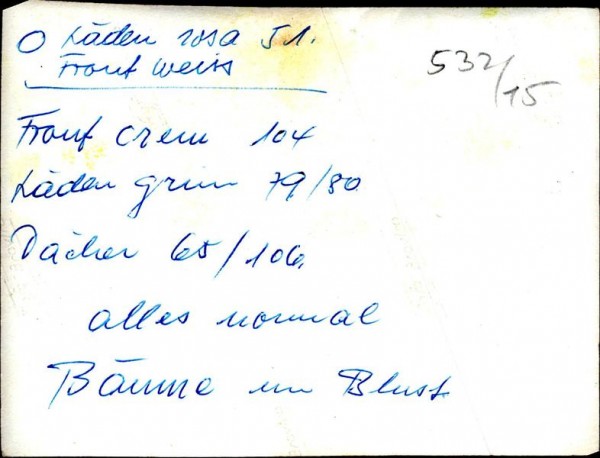 O Läden rosa 51.
Front weiss
532/15
Front crem 104
Läden grün 79/80
Dächer 65/106.
alles normal
Bäume im Blust